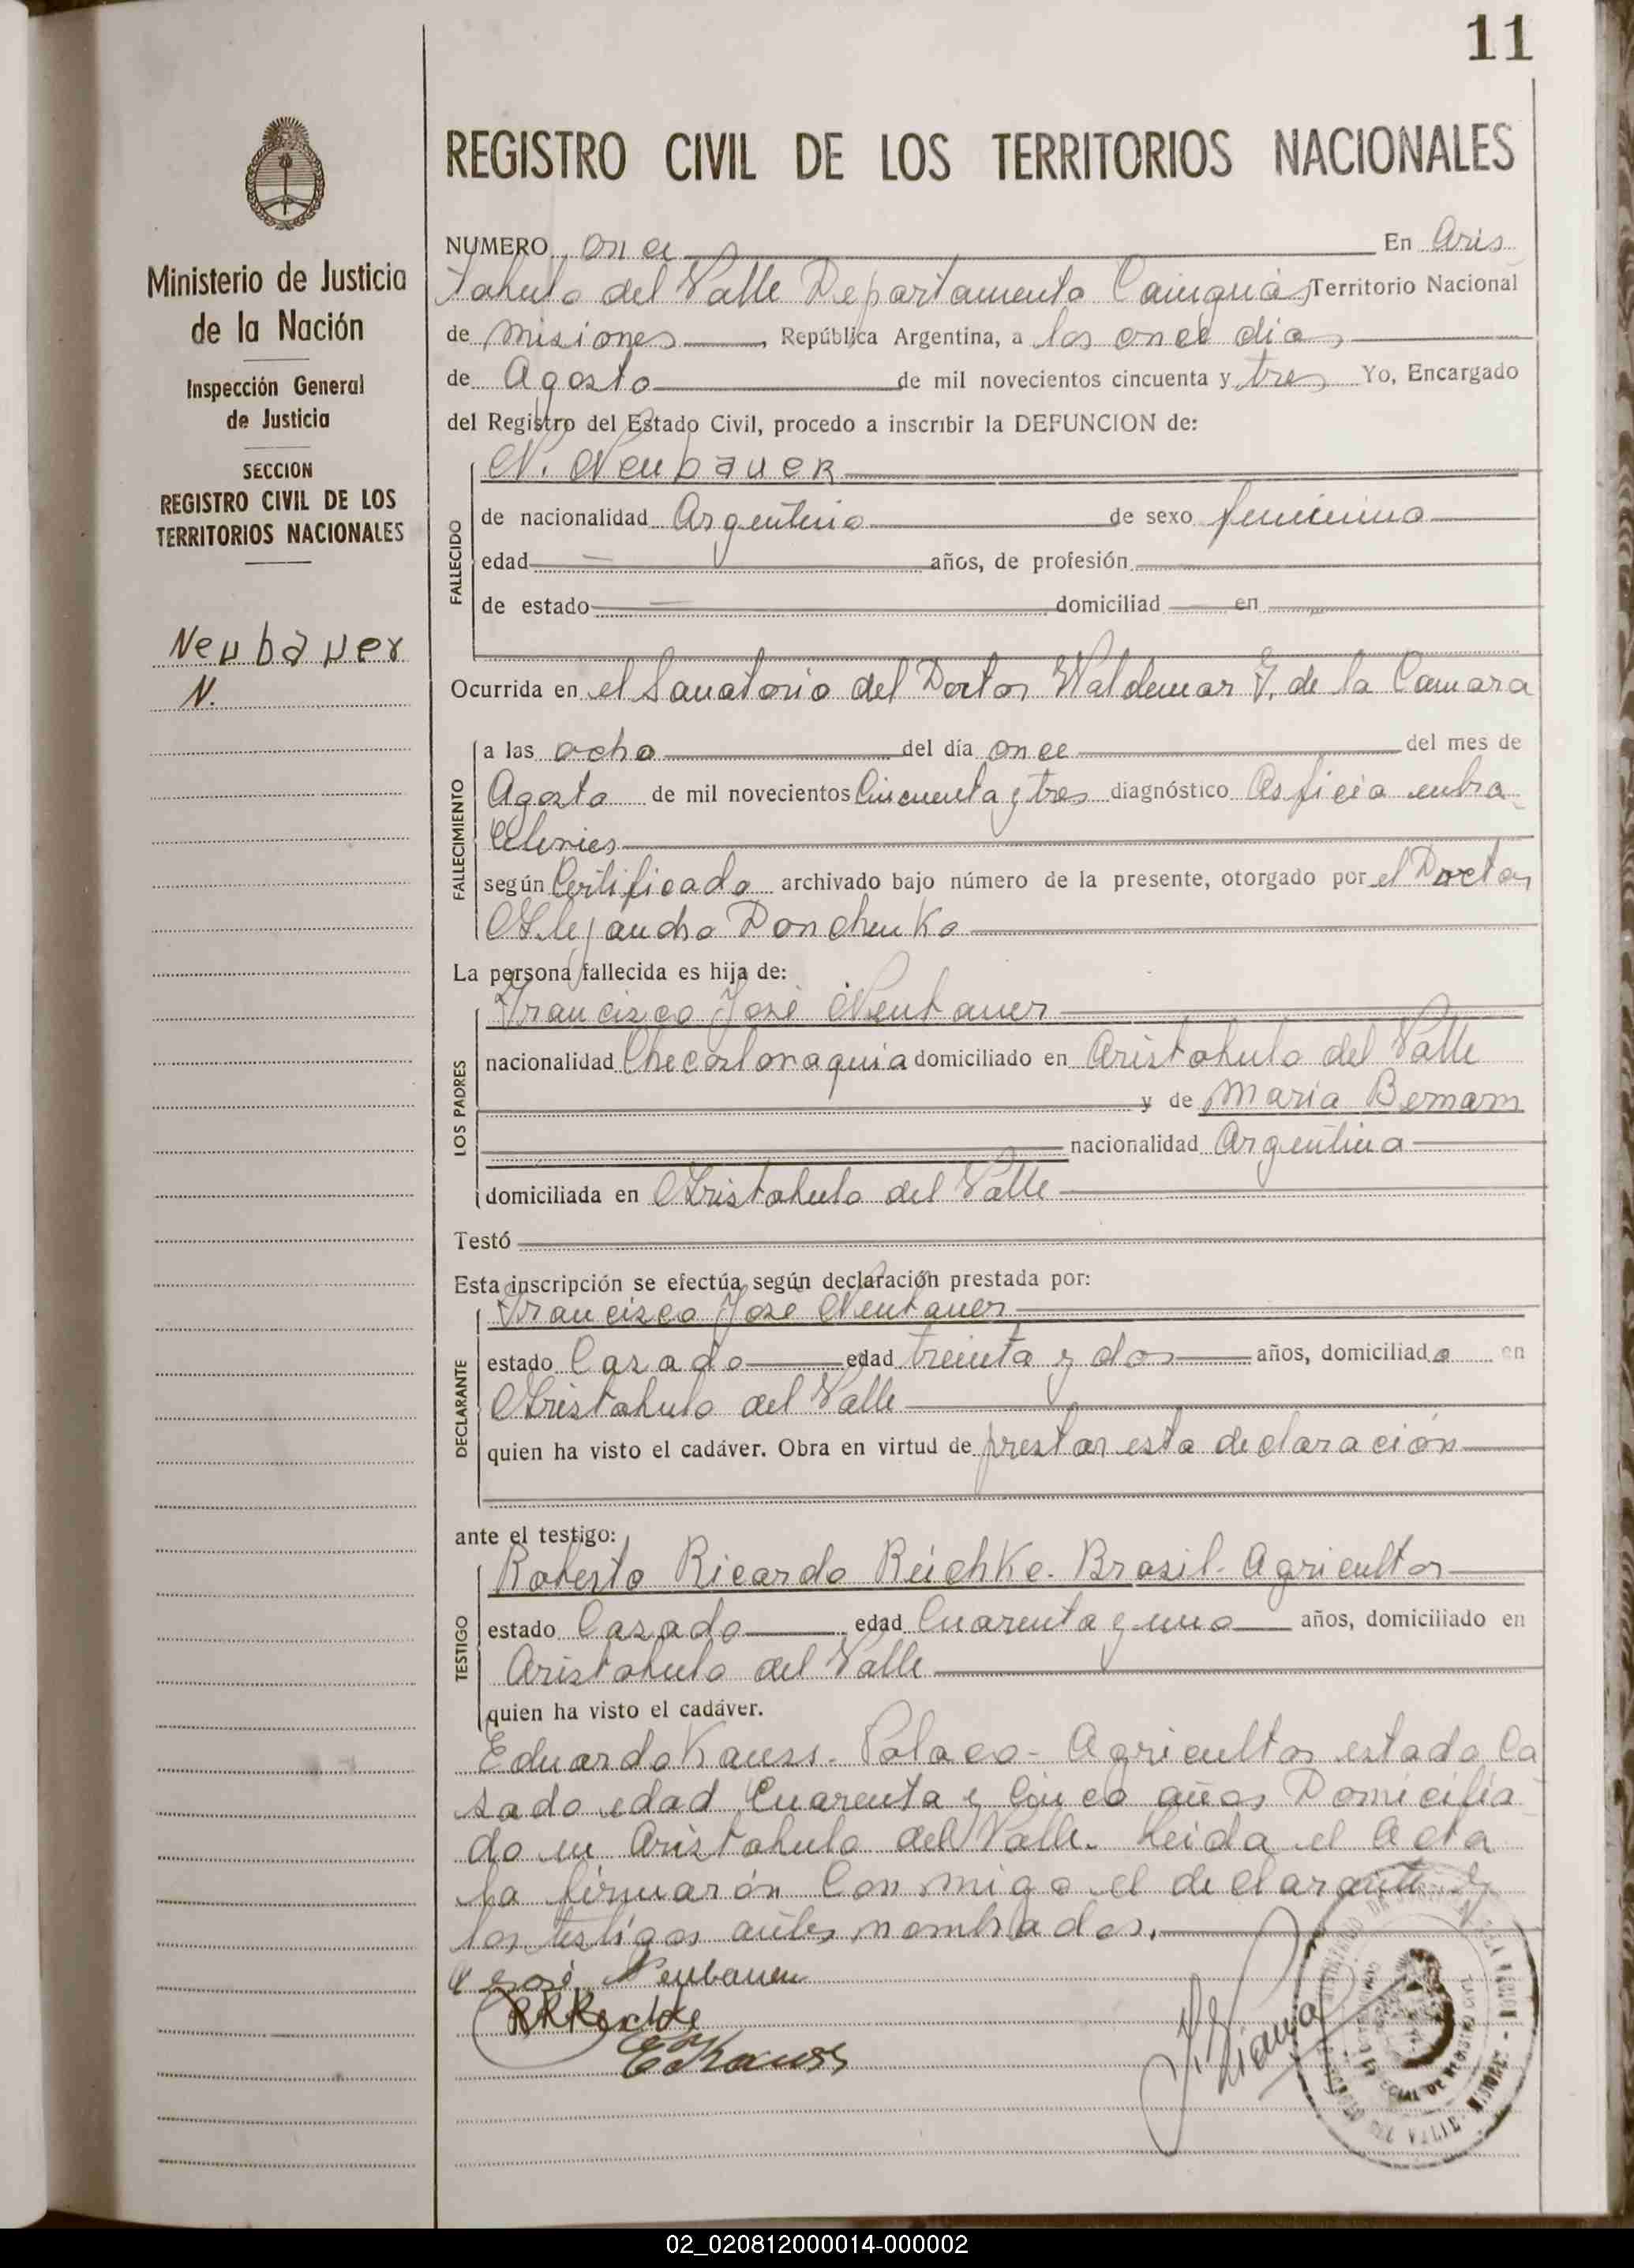 11
Ministerio de Justicia
de la Nación
Inspección General
de Justicia
SECCION
REGISTRO CIVIL DE LOS
TERRITORIOS NACIONALES
Neubauer
N.
REGISTRO CIVIL DE LOS TERRITORIOS NACIONALES
NUMERO once En Aris
tobulo del Valle Departamento Cainguás Territorio Nacional
de Misiones, República Argentina, a los once dias
de Agosto de mil novecientos cincuenta y tres Yo, Encargado
del Registro del Estado Civil, procedo a inscribir la DEFUNCION de:
FALLECIDO
N. Neubauer
de nacionalidad Argentina de sexo femenino
edad años, de profesión
de estado domiciliad en
Ocurrida en el Sanatorio del Doctor Waldemar F. de la Camara
FALLECIMIENTO
a las ocho del día once del mes de
Agosto de mil novecientos Cincuenta y tres diagnóstico Asficia
según Certificado archivado bajo número de la presente, otorgado por el Doctor
Alejandro Donchenko
La persona fallecida es hija de:
LOS PADRES
Francisco José Neubauer
nacionalidad Checoslovaquia domiciliado en Aristobulo del Valle
y de Maria
nacionalidad Argentina
domiciliada en Aristobulo del Valle
Testó
Esta inscripción se efectúa según declaración prestada por:
DECLARANTE
Francisco José Neubauer
estado Casado edad treinta y dos años, domiciliado en
Aristobulo del Valle
quien ha visto el cadáver. Obra en virtud de prestar esta declaración
ante el testigo:
TESTIGO
Roberto Ricardo Reichke - Brasil - Agricultor
estado Casado edad Cuarenta y uno años, domiciliado en
Aristobulo del Valle
quien ha visto el cadáver.
Eduardo Kauss - Polaco - Agricultor estado Ca
sado edad Cuarenta y Cinco años Domicilia
do en Aristobulo del Valle. Leida el Acta
la firmarón Con migo el declarante y
los testigos antes nombrados.
José Neubauer
E. Kauss
02_020812000014-000002